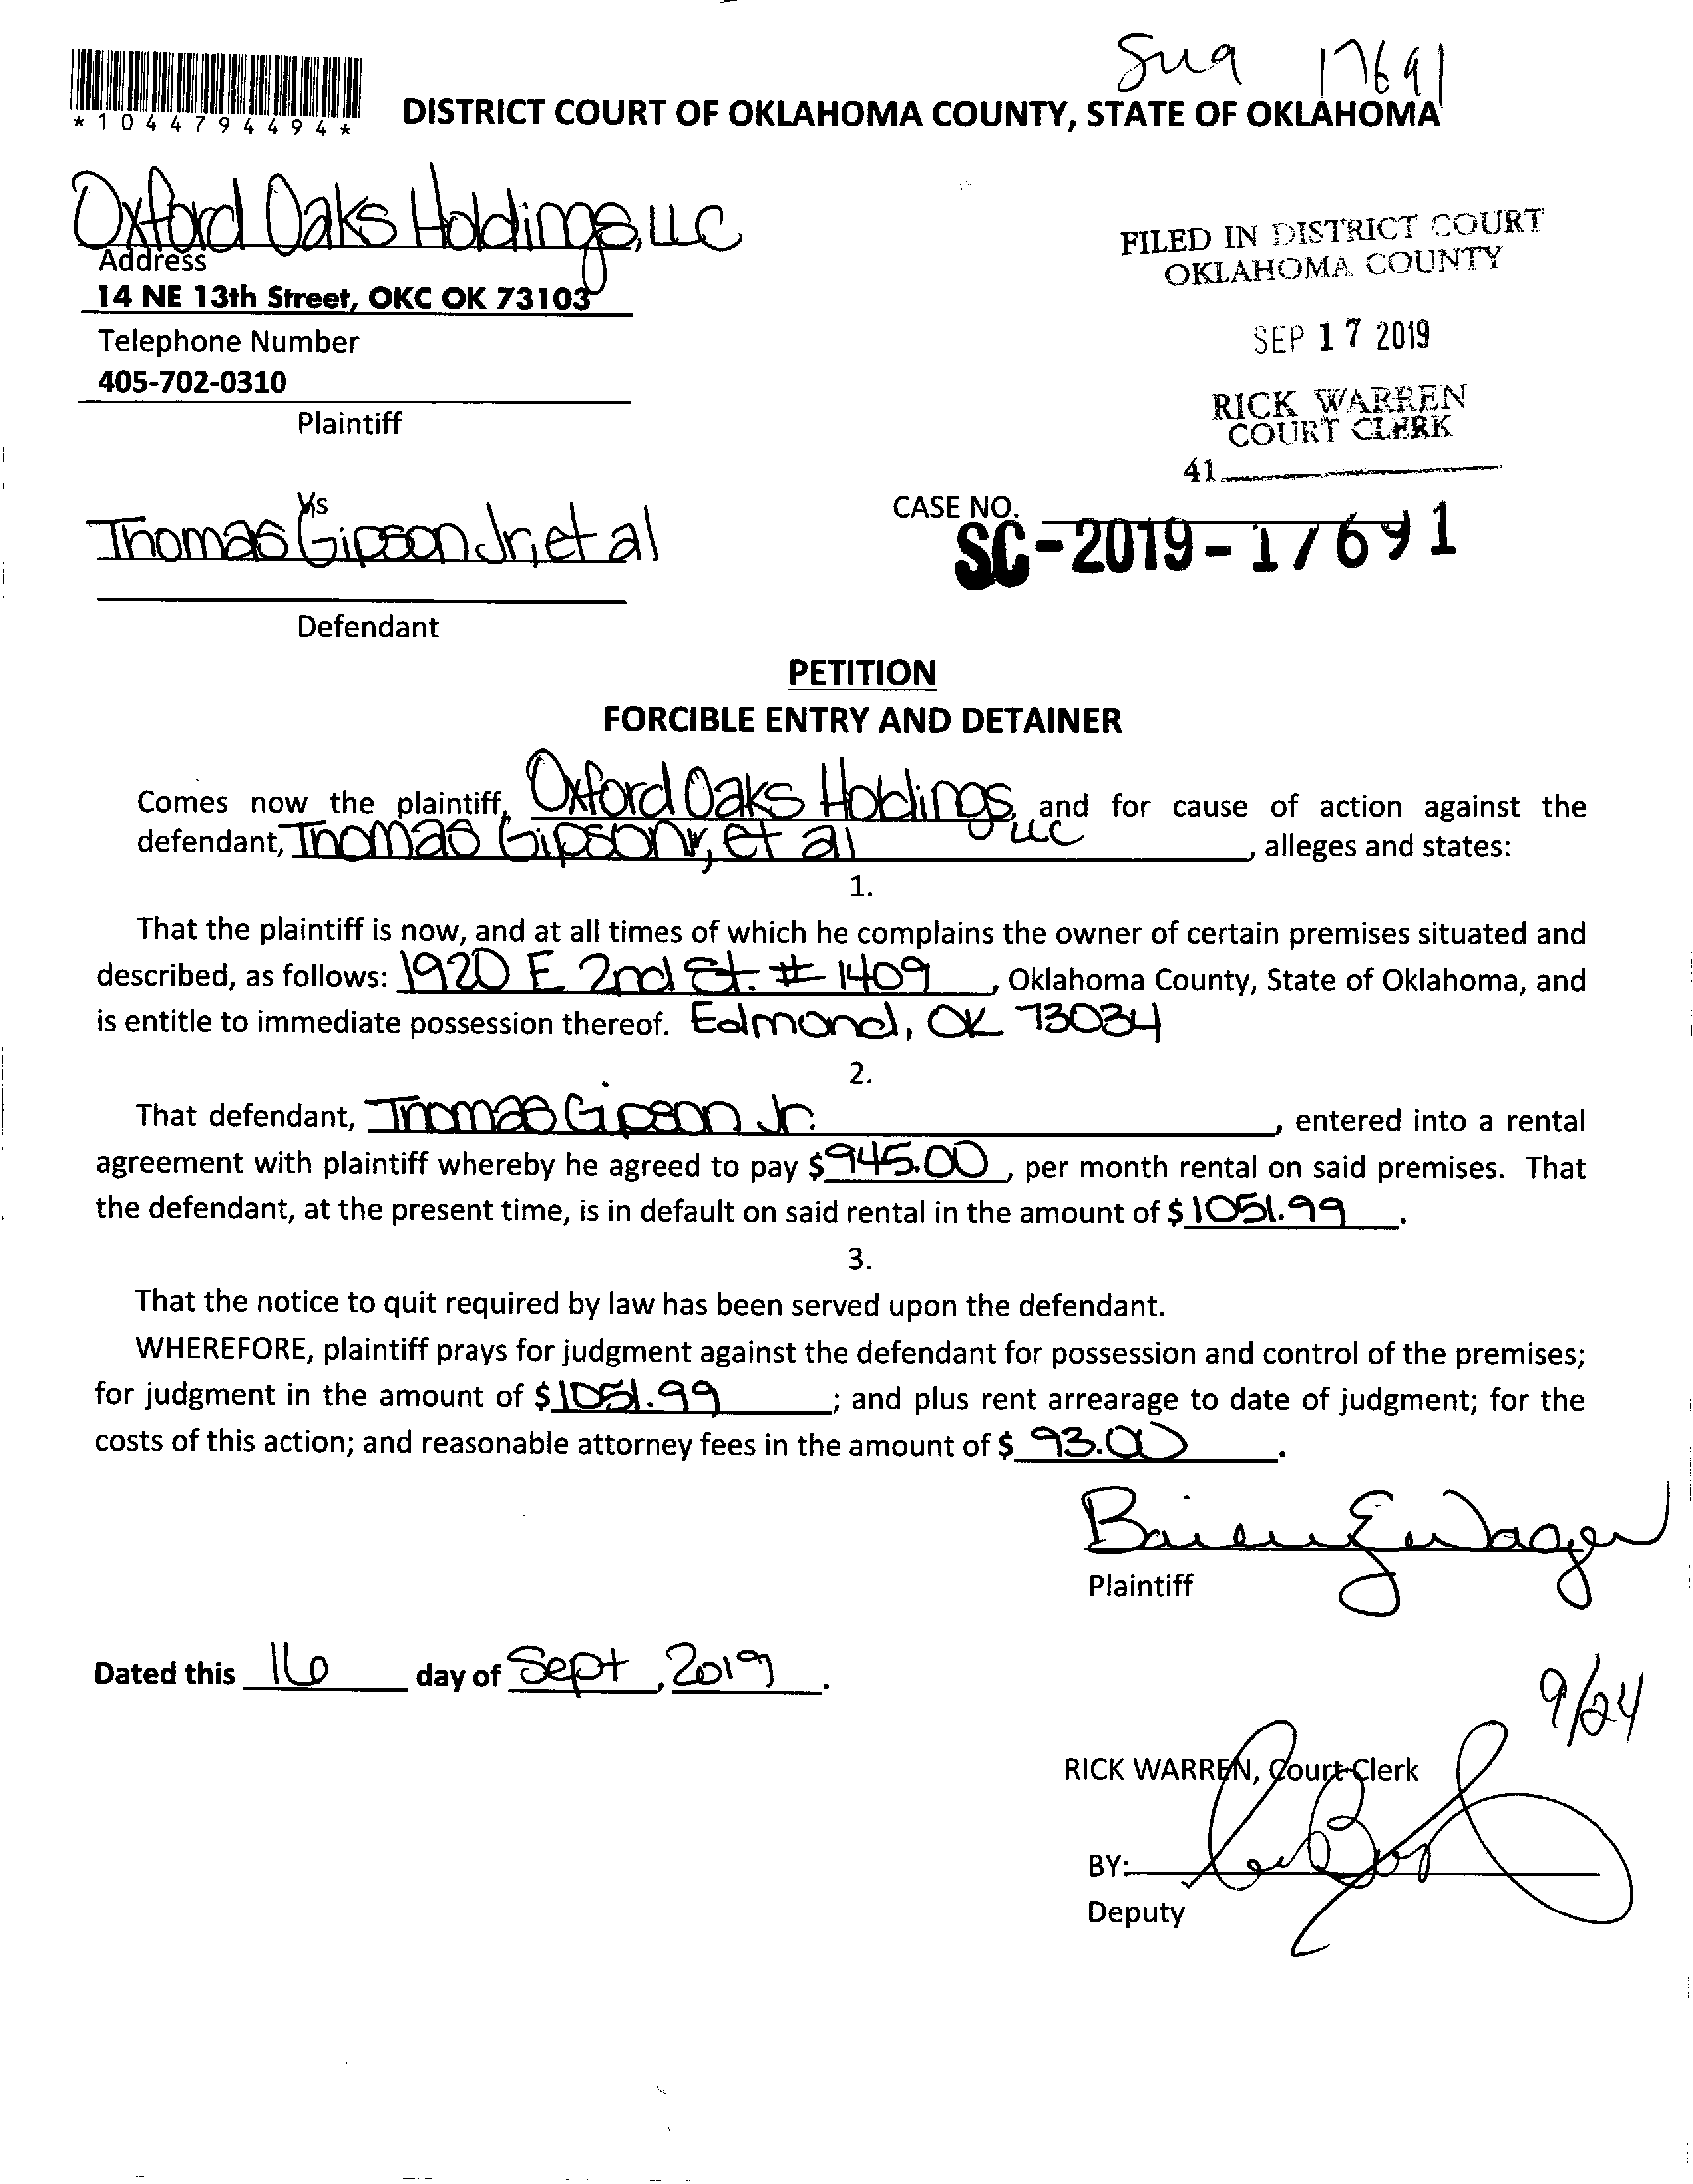 Sug 17691
*1044794494*
DISTRICT COURT OF OKLAHOMA COUNTY, STATE OF OKLAHOMA
Oxford Oaks Holdings, LLC
Address
14 NE 13th Street, OKC OK 73103
Telephone Number
405-702-0310
Plaintiff
FILED IN DISTRICT COURT
OKLAHOMA COUNTY
SEP 17 2019
RICK WARREN
COURT CLERK
41
Vs
Thomas Gipson Jr, et al
Defendant
CASE NO.
SC-2019-17691
PETITION
FORCIBLE ENTRY AND DETAINER
Comes now the plaintiff, Oxford Oaks Holdings, LLC and for cause of action against the
defendant, Thomas Gipson Jr, et al, alleges and states:
1.
That the plaintiff is now, and at all times of which he complains the owner of certain premises situated and
described, as follows: 1920 E 2nd St. # 1409, Oklahoma County, State of Oklahoma, and
is entitle to immediate possession thereof. Edmond, OK 73034
2.
That defendant, Thomas Gipson Jr., entered into a rental
agreement with plaintiff whereby he agreed to pay $945.00, per month rental on said premises. That
the defendant, at the present time, is in default on said rental in the amount of $1051.99.
3.
That the notice to quit required by law has been served upon the defendant.
WHEREFORE, plaintiff prays for judgment against the defendant for possession and control of the premises;
for judgment in the amount of $1051.99; and plus rent arrearage to date of judgment; for the
costs of this action; and reasonable attorney fees in the amount of $ 93.00.
Plaintiff
Dated this 16 day of Sept, 2019.
9/24
RICK WARREN, Court Clerk
BY:
Deputy